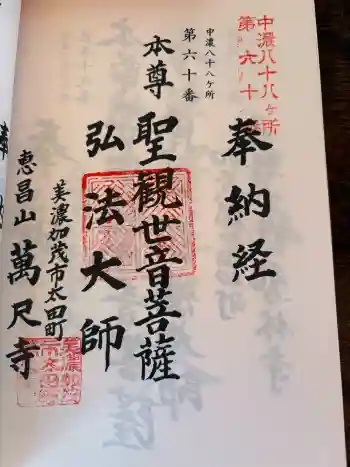 中濃八十八ヶ所
第六十
奉納経
中濃八十八ケ所
第六十番
本尊
聖觀世音菩薩
弘法大師
美濃加茂市太田町
恵昌山
萬尺寺